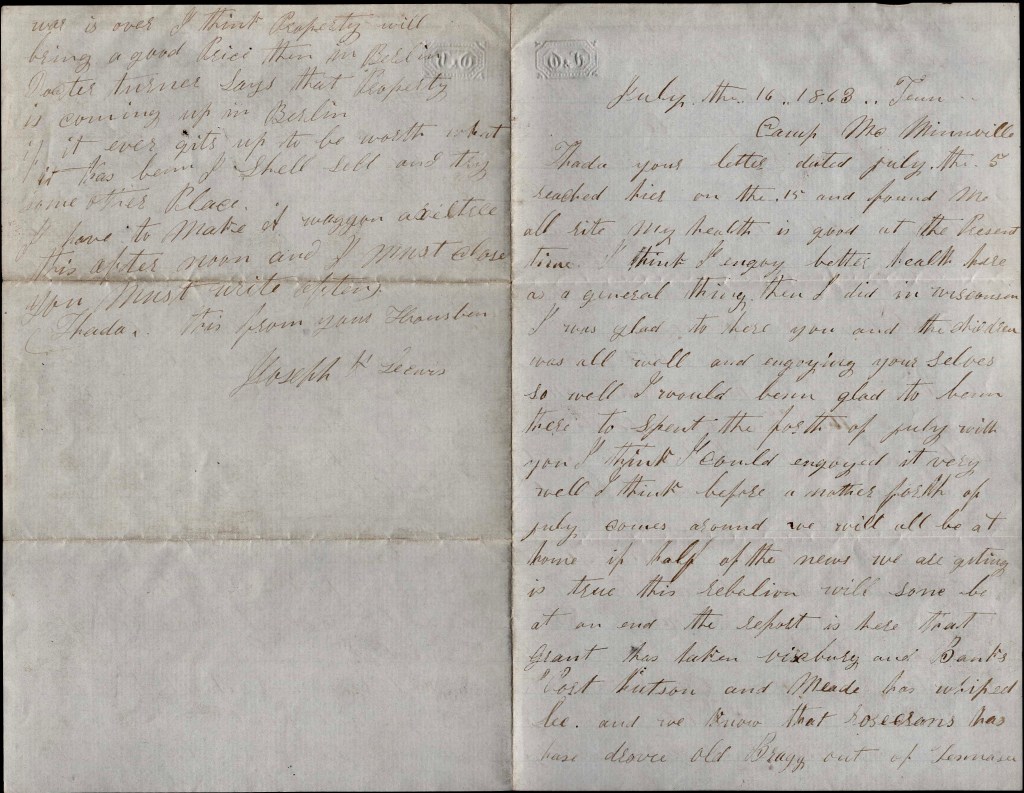 July. the.. 16.. 1863.. Tenn
Camp Mc Minnville
Thada your letter dated july. the. 5
reached hier on the. 15 and found Me
all rite My health is good at the Present
time. I think I engoy better health here
as a general thing. then I did in wisconson
I was glad to here you and the children
was all well and engoying your selves
so well I would benn glad to benn
there to Spent the forth of july with
you I think I could engoyed it very
well I think before a nother forth of
july comes around we will all be at
home if half of the news we are giting
is true this rebelion will sone be
at an end the report is here that
Grant Has taken vixburg and Banks
Port Hutson and Meade has whiped
lee. and we know that rosecrans has
have drove old Bragg out of
war is over I think Property will
bring a good Price then in Berlin
Docter turner Says that Property
is coming up in Berlin
if it ever gits up to be worth what
it Has benn I Shell sell and try
some other Place.
I have to Make A waggon axiltree
this after noon and I Must close
you Must write often
Thada. this from your
Joseph H